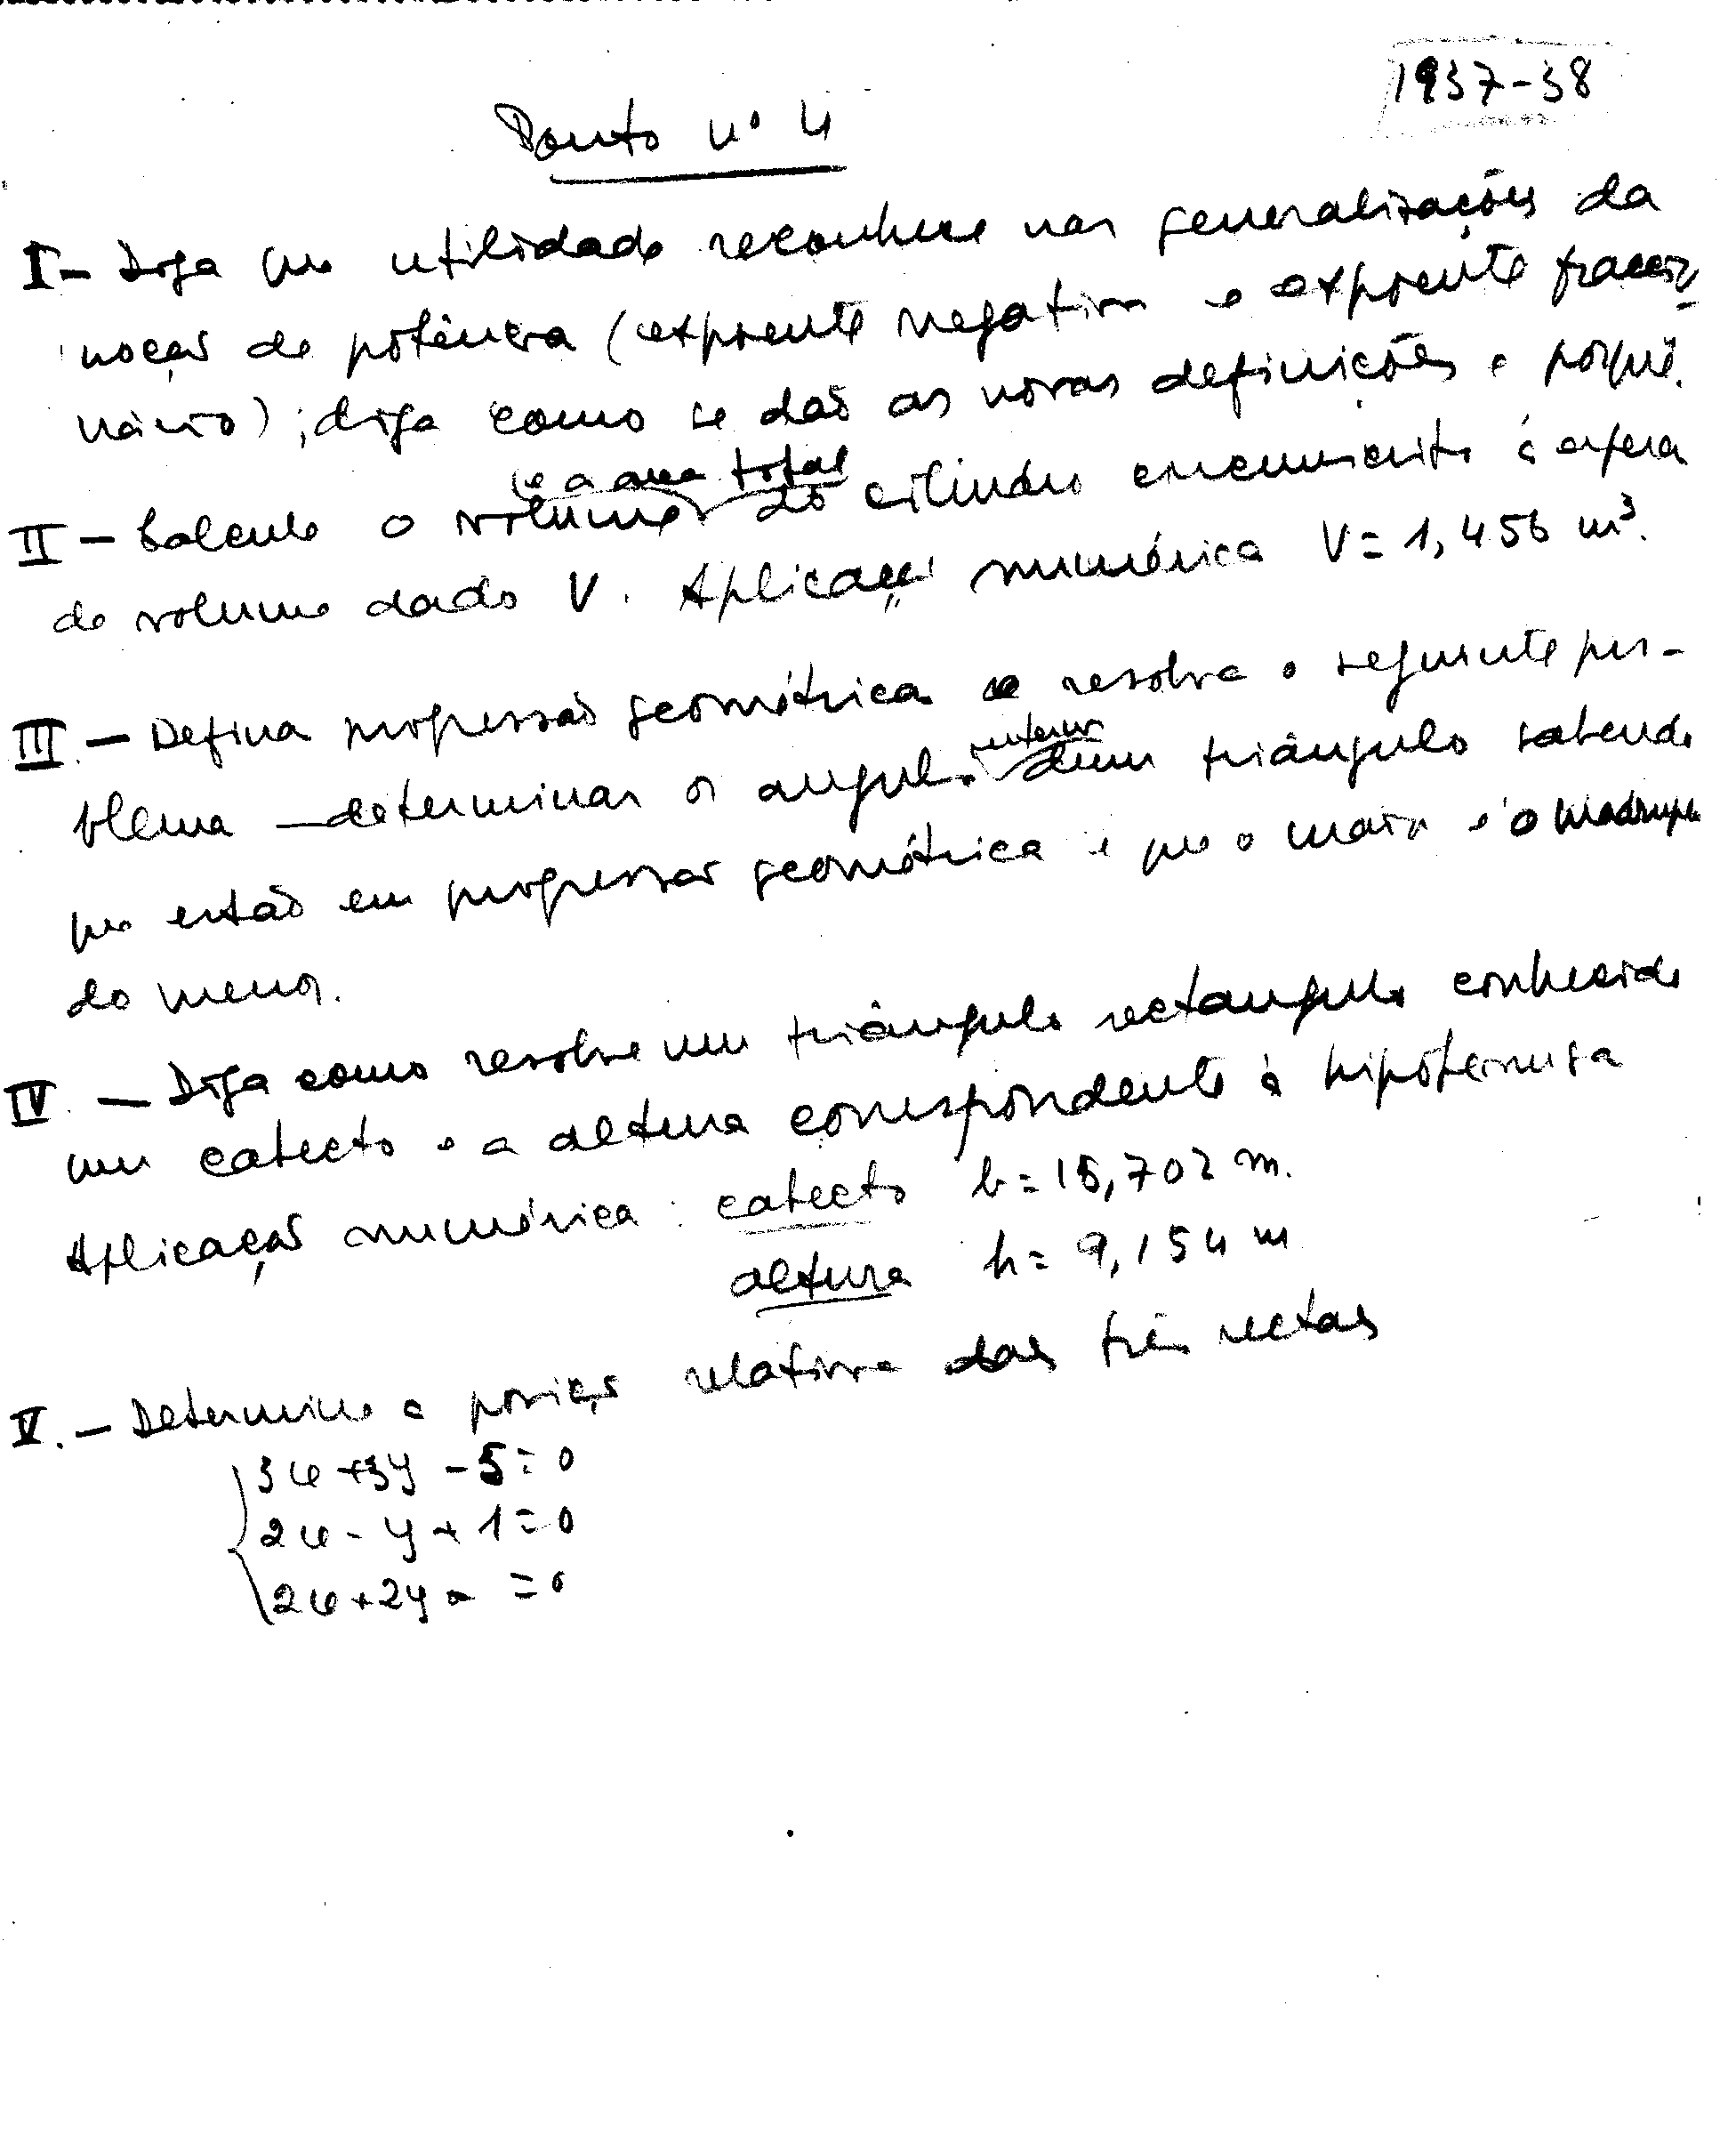 1937-38
Ponto nº 4
I - Diga que utilidade reconhece nas generalizações da
noção de potência (expoente negativo e expoente fraccio-
nário); diga como se dão as novas definições e porquê.
II - Calcule o volume e a area total do cilindro circunscrito á esfera
de volume dado V. Aplicação numérica V = 1,456 m³.
III. - Defina progressão geométrica e resolva o seguinte pro-
blema - determinar os angulos internos dum triângulo sabendo
que estão em progressão geométrica e que o maior é o quadruplo
do menor.
IV. - Diga como resolve um triângulo rectangulo conhecido
um catecto e a altura correspondente á hipotenusa
Aplicação numérica: catecto b = 15,702 m.
altura h = 9,154 m
V. - Determine a posição relativa das três rectas
3x + 3y - 5 = 0
2x - y + 1 = 0
2x + 2y = 0